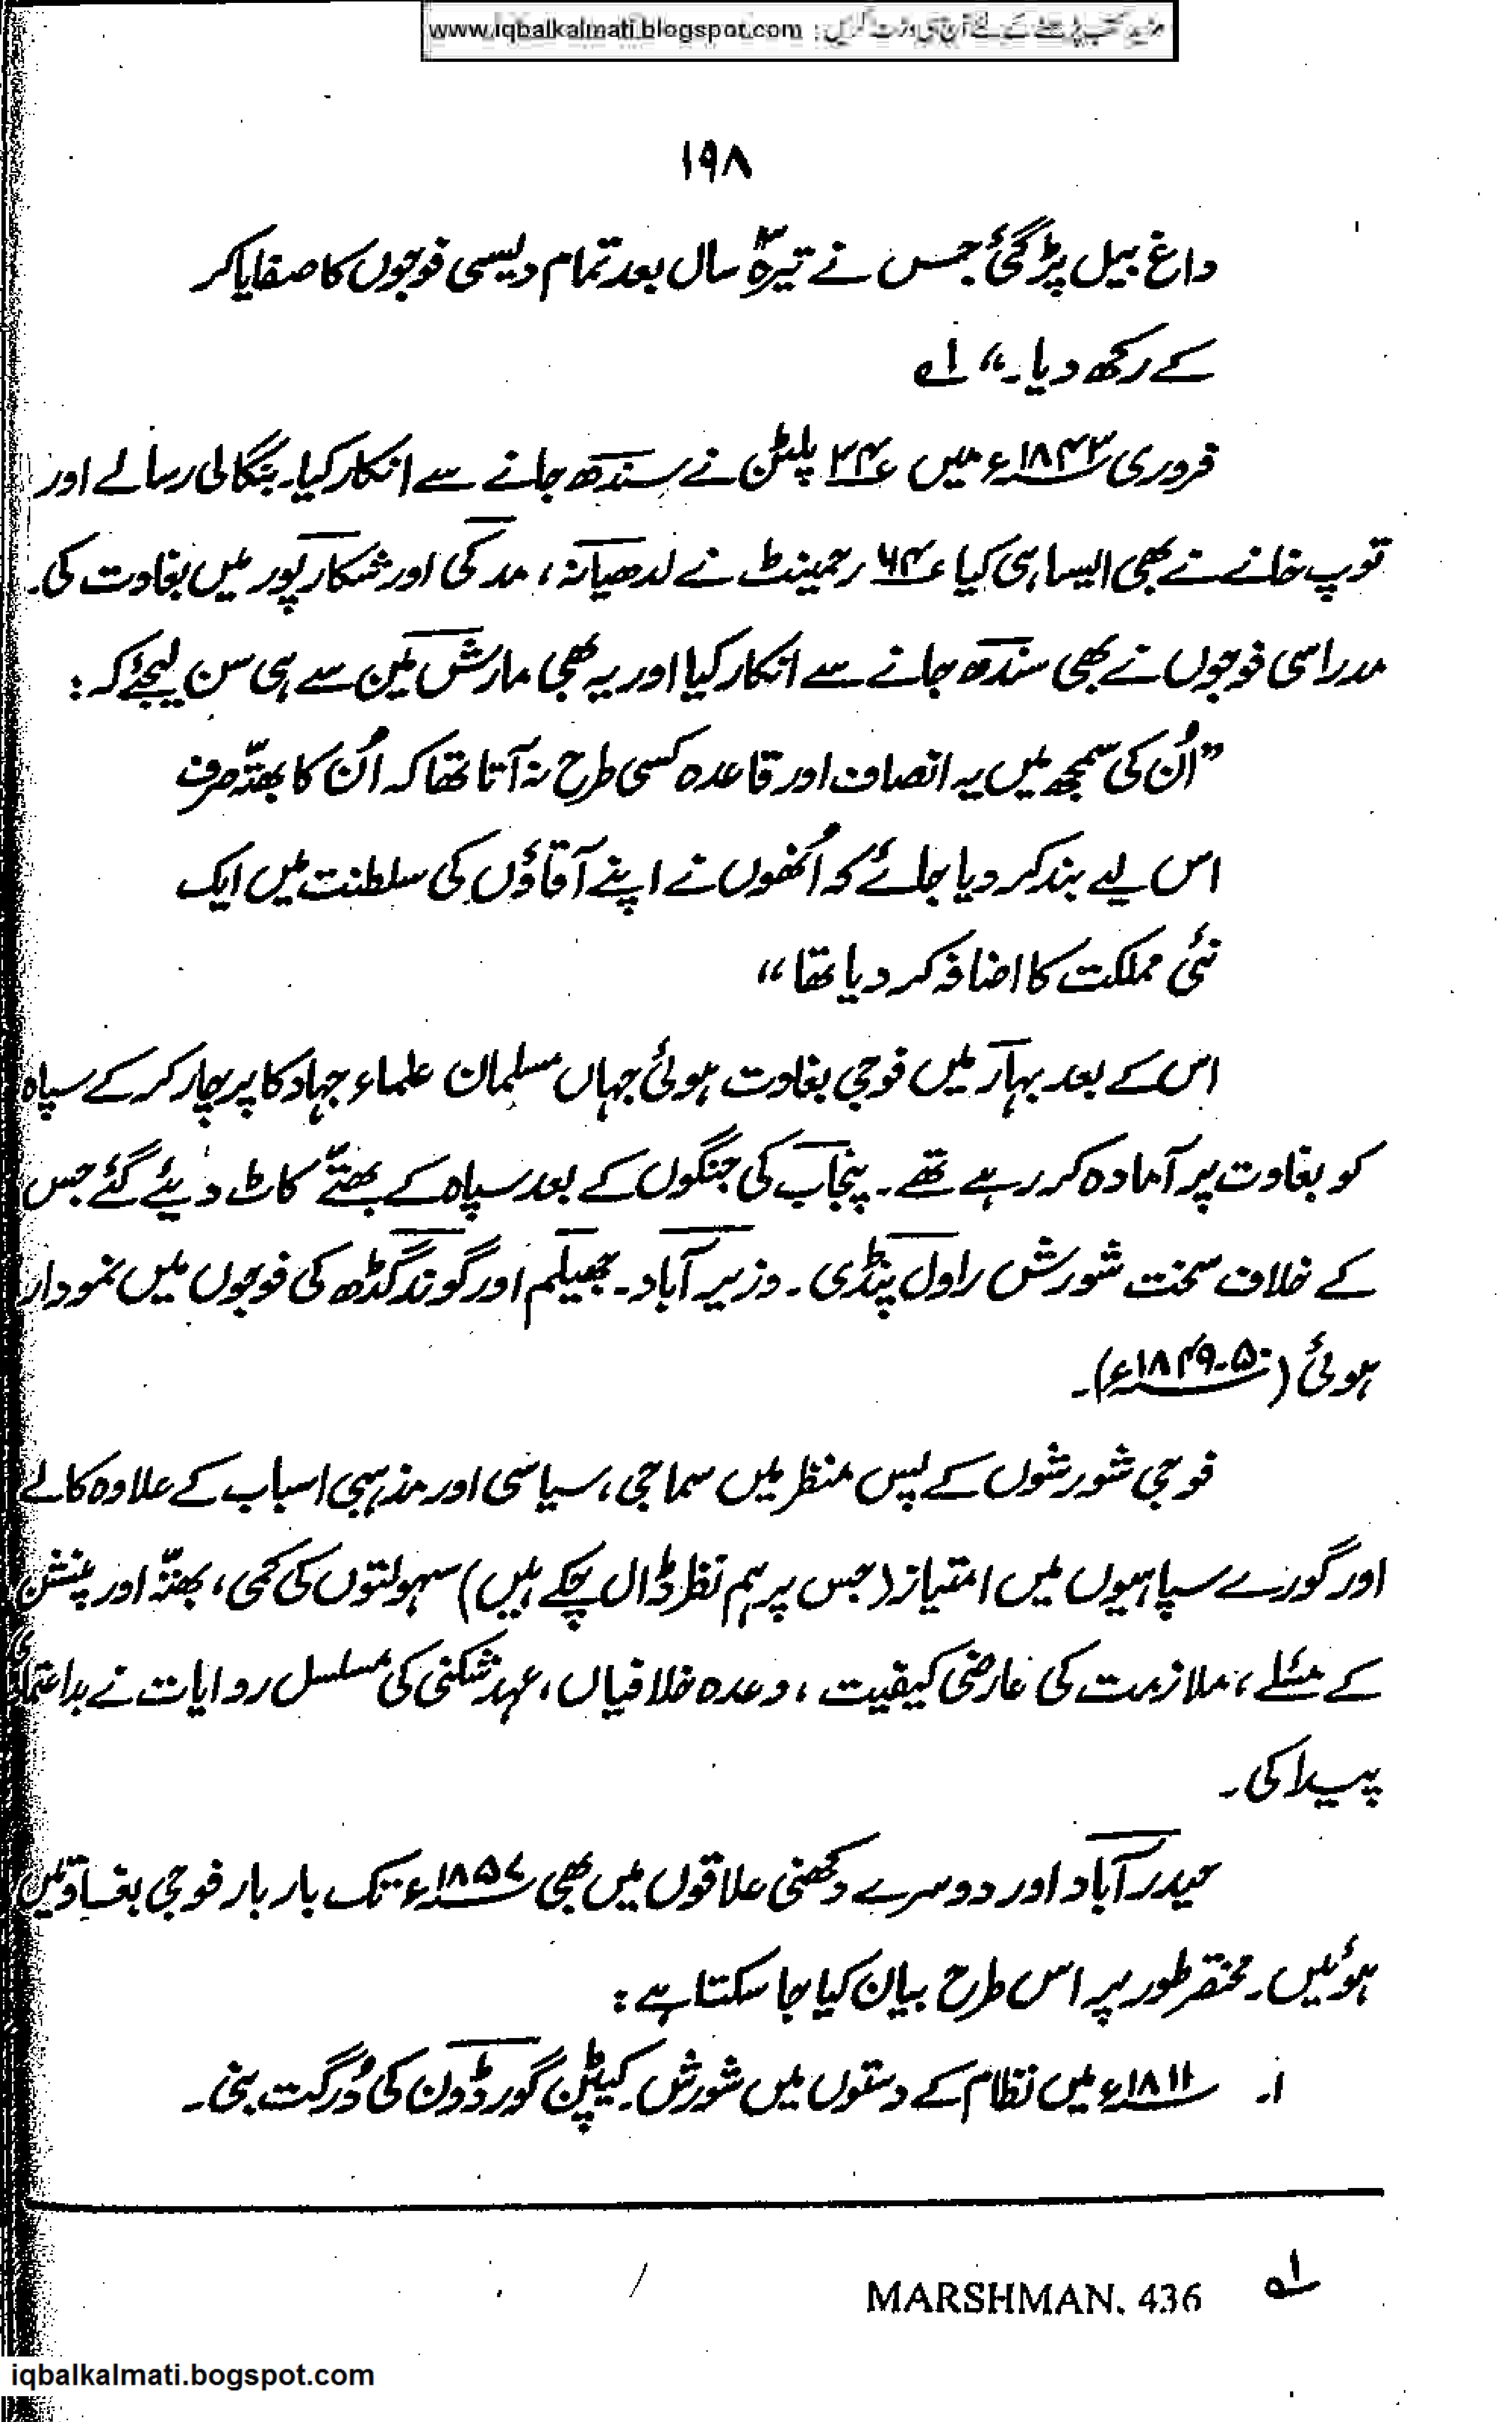 مزید کتب پڑھنے کے لئے آج ہی وزٹ کریں : www.iqbalkalmati.blogspot.com
۱۹۸
داغ بیل پڑ گئی جس نے تیرہ۱۳ سال بعد تمام دیسی فوجوں کا صفایا کر
کے رکھ دیا۔“ ۱ے
فروری ۱۸۴۳ء میں ۳۴ء پلٹن نے سندھ جانے سے انکار کیا۔ بنگالی رسالے اور
توپ خانے نے بھی ایسا ہی کیا ۶۴ء رجمینٹ نے لدھیانہ، مدکی اور شکارپور میں بغاوت کی۔
مدراسی فوجوں نے بھی سندھ جانے سے انکار کیا اور یہ بھی مارش مین سے ہی سن لیجئے کہ :
”اُن کی سمجھ میں یہ انصاف اور قاعدہ کسی طرح نہ آتا تھا کہ اُن کا بھتّہ صرف
اس لیے بند کر دیا جائے کہ اُنھوں نے اپنے آقاؤں کی سلطنت میں ایک
نئی مملکت کا اضافہ کر دیا تھا“
اس کے بعد بہار میں فوجی بغاوت ہوئی جہاں مسلمان علماء جہاد کا پرچار کر کے سپاہ
کو بغاوت پر آمادہ کر رہے تھے۔ پنجاب کی جنگوں کے بعد سپاہ کے بھتّے کاٹ دیئے گئے جس
کے خلاف سخت شورش راول پنڈی۔ وزیر آباد۔ جھیلم اور گوندگڈھ کی فوجوں میں نمودار
ہوئی (۵۰-۱۸۴۹ء)۔
فوجی شورشوں کے پس منظر میں سماجی، سیاسی اور مذہبی اسباب کے علاوہ کالے
اور گورے سپاہیوں میں امتیاز (جس پر ہم نظر ڈال چکے ہیں) سہولتوں کی کمی، بھتّہ اور پنشن
کے مسئلے، ملازمت کی عارضی کیفیت، وعدہ خلافیاں، عہد شکنی کی مسلسل روایات نے بداعتمادی
پیدا کی۔
حیدرآباد اور دوسرے دکھنی علاقوں میں بھی ۱۸۵۷ء تک بار بار فوجی بغاوتیں
ہوئیں۔ مختصر طور پر اس طرح بیان کیا جا سکتا ہے :
۱۔ ۱۸۱۱ء میں نظام کے دستوں میں شورش۔ کیپٹن گورڈون کی دُرگت بنی۔
۱ے MARSHMAN. 436
iqbalkalmati.bogspot.com